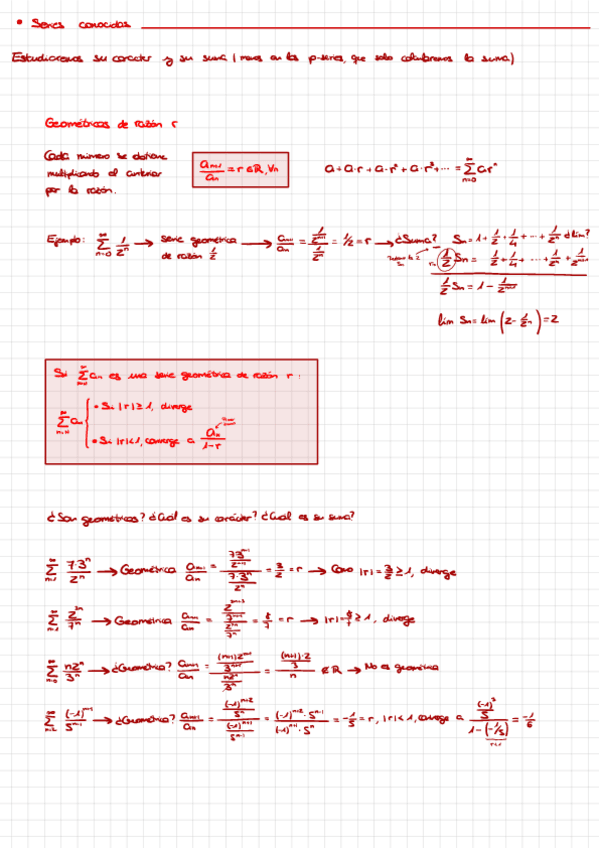 • Series conocidas
Estudiaremos su carácter y su suma (menos en las p-series, que solo calcularemos la suma)
Geométricas de razón r
Cada número se obtiene
multiplicando el anterior
por la razón.
a_{n+1}/a_n = r ∈ ℝ, ∀n
a + a·r + a·r² + a·r³ + ... = ∑_{n=0}^∞ a r^n
Ejemplo: ∑_{n=0}^∞ 1/2^n → serie geométrica de razón 1/2 → a_{n+1}/a_n = (1/2^{n+1})/(1/2^n) = 1/2 = r → ¿Suma? S_n = 1 + 1/2 + 1/4 + ... + 1/2^n ¿lim?
1/2 S_n = 1/2 + 1/4 + ... + 1/2^n + 1/2^{n+1}
1/2 S_n = 1 - 1/2^{n+1}
lim S_n = lim (2 - 1/2^n) = 2
Si ∑ a_n es una serie geométrica de razón r:
∑ a_n { • Si |r| ≥ 1, diverge
• Si |r| < 1, converge a a_n/(1-r)
¿Son geométricas? ¿Cuál es su carácter? ¿Cuál es su suma?
∑ 7·3^n/2^n → Geométrica a_{n+1}/a_n = (7·3^{n+1}/2^{n+1})/(7·3^n/2^n) = 3/2 = r → Como |r| = 3/2 ≥ 1, diverge
∑ 2^{3n}/7^n → Geométrica a_{n+1}/a_n = (2^{3n+3}/7^{n+1})/(2^{3n}/7^n) = 8/7 = r → |r| = 8/7 ≥ 1, diverge
∑ n2^n/3^n → ¿Geométrica? a_{n+1}/a_n = ((n+1)2^{n+1}/3^{n+1})/(n2^n/3^n) = ((n+1)·2/3)/n ∉ ℝ → No es geométrica
∑ (-1)^{n+1}/5^{n-1} → ¿Geométrica? a_{n+1}/a_n = ((-1)^{n+2}/5^n)/((-1)^{n+1}/5^{n-1}) = (-1)^{n+2}·5^{n-1}/(-1)^{n+1}·5^n = -1/5 = r, |r| < 1, converge a ((-1)^3/5)/(1-(-1/5)) = -1/6